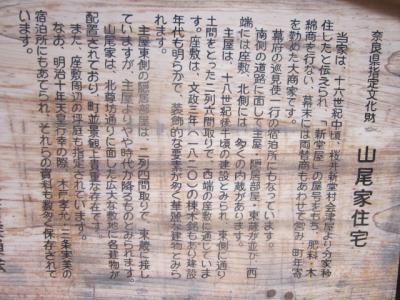 奈良県指定文化財
山尾家住宅
当家は、十六世紀中頃、桜井新堂村金津屋より分家移
住したと伝えられ、「新堂屋」の屋号をもち、肥料・木
綿商を行ない、幕末には両替商もあわせて営み、町年寄
を勤めた大商家です。
幕府の巡見使一行の宿泊所にもなっています。
南側の道路に面して主屋、隠居部屋、東蔵が並び、西
端には座敷、北側には、多くの内蔵があります。
主屋は、十八世紀後半頃の建設とみられ、東側に通り
土間をとった二列六間取りで、西端の座敷に通じていま
す。座敷は、文政三年(一八二〇)の棟木銘があり建設
年代も明らかで、装飾的な要素が多く華麗な建物とみら
れます。
主屋東側の隠居部屋は、二列四間取りで、東蔵に接し
ていますが、主屋よりやや時代が降るものとみられます。
山尾家は、北尊坊通りに面した広大な敷地に各建物が
配置されており、町並景観上貴重な存在です。
また、座敷周辺の坪庭も指定されています。
なお、明治十年天皇行幸の際、木戸孝允、三条実美の
宿泊所にもあてられ、それらの資料も数多く保存されて
います。